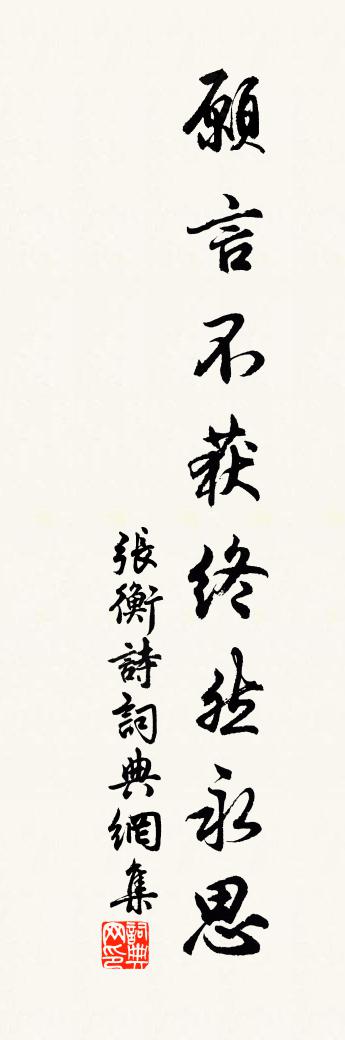 願言不获終然永思
張衡詩詞典網集
詞典
网印